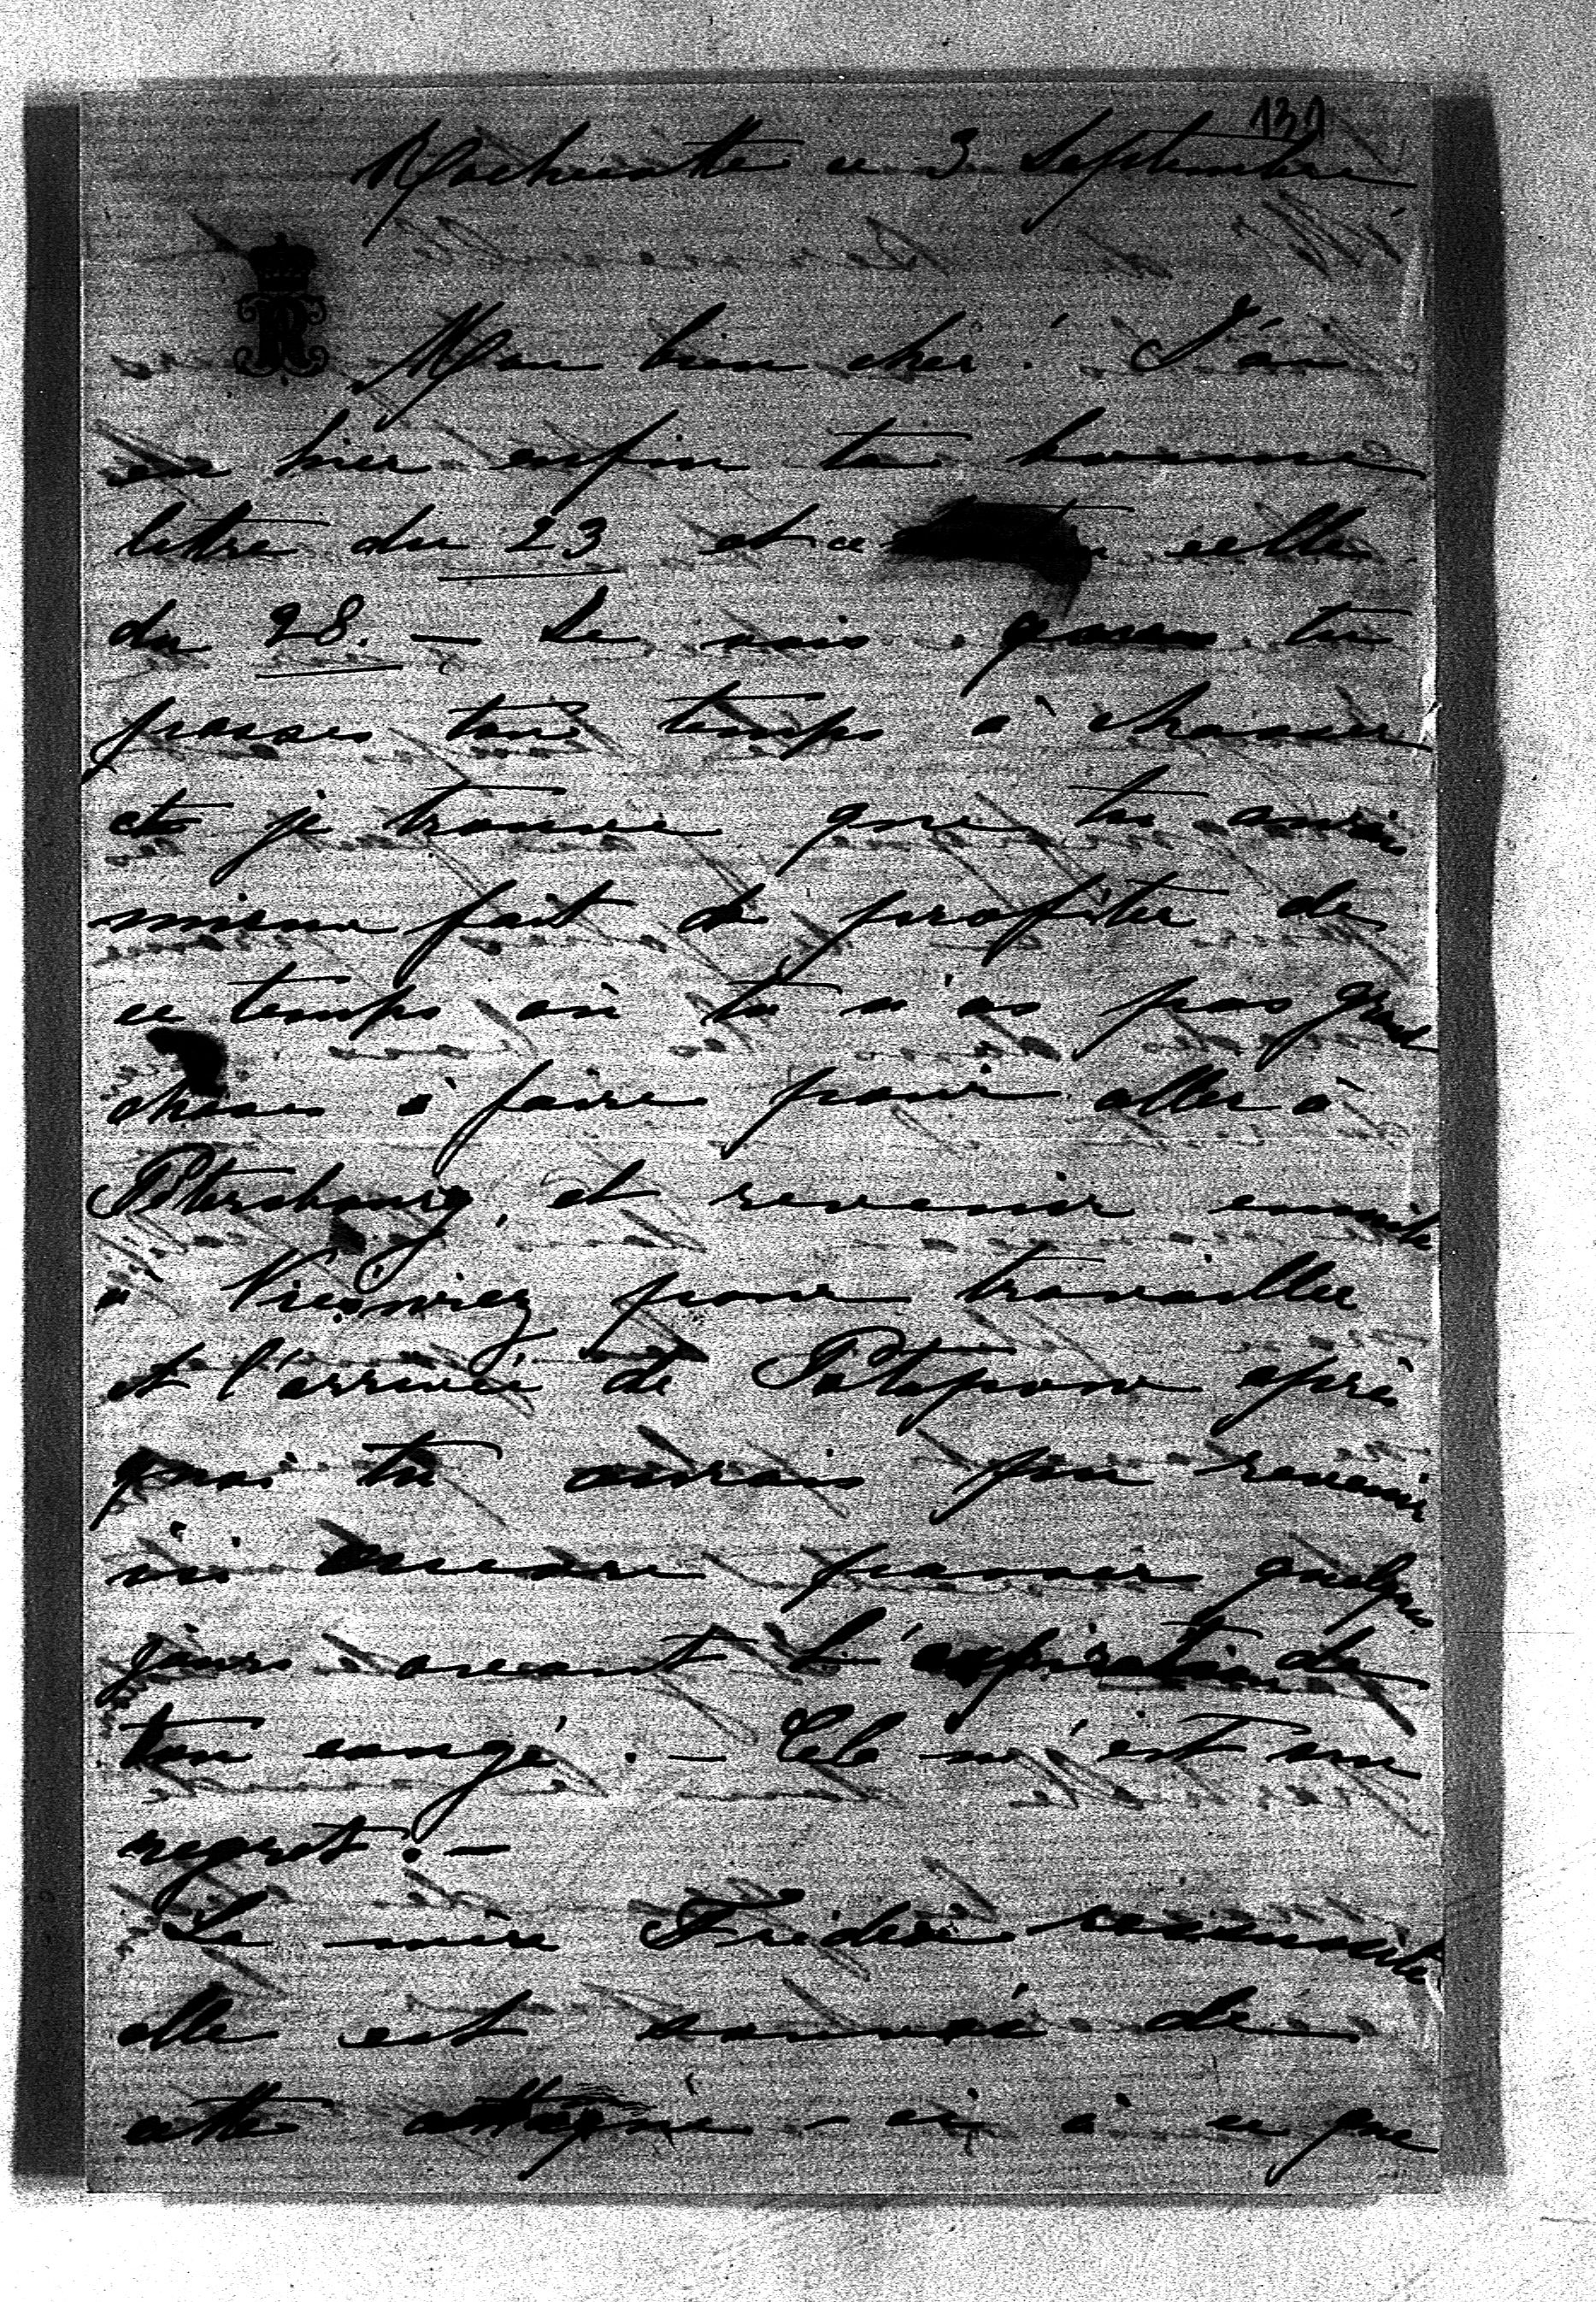 139
ce 3 Septembre
Mon bien cher! J'ai
eu hier enfin ta bonne
lettre du 23 et ce celle
du 28. — Je vois que tu
passes ton temps à chasser
et je trouve que tu aurais
mieux fait de profiter de
ce temps où tu n'as pas grand
choses à faire pour aller à
Petersbourg, et revenir ensuite
à pour travailler
et l'arrivée de Potapow après
quoi tu aurais pu revenir
ici encore passer quelques
jours avant l'expiration de
ton congé. — Cela m'est un
regret. —
La mère Fréderic ressuscite
elle est sauvée de
cette attaque-ci, à ce que